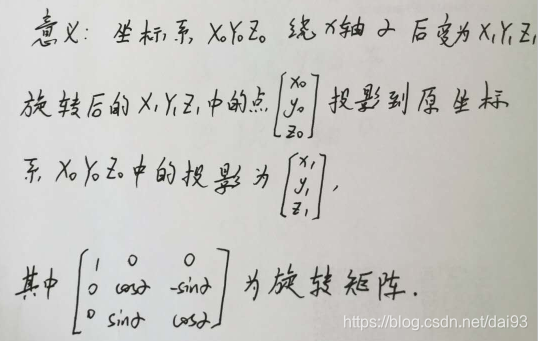 意义: 坐标系 X₀Y₀Z₀ 绕X轴 α 后变为 X₁Y₁Z₁
旋转后的 X₁Y₁Z₁中的点 [x₀ y₀ z₀] 投影到原坐标
系 X₀Y₀Z₀ 中的投影为 [x₁ y₁ z₁],
其中 [1 0 0
0 cosα -sinα
0 sinα cosα] 为旋转矩阵.
https://blog.csdn.net/dai93